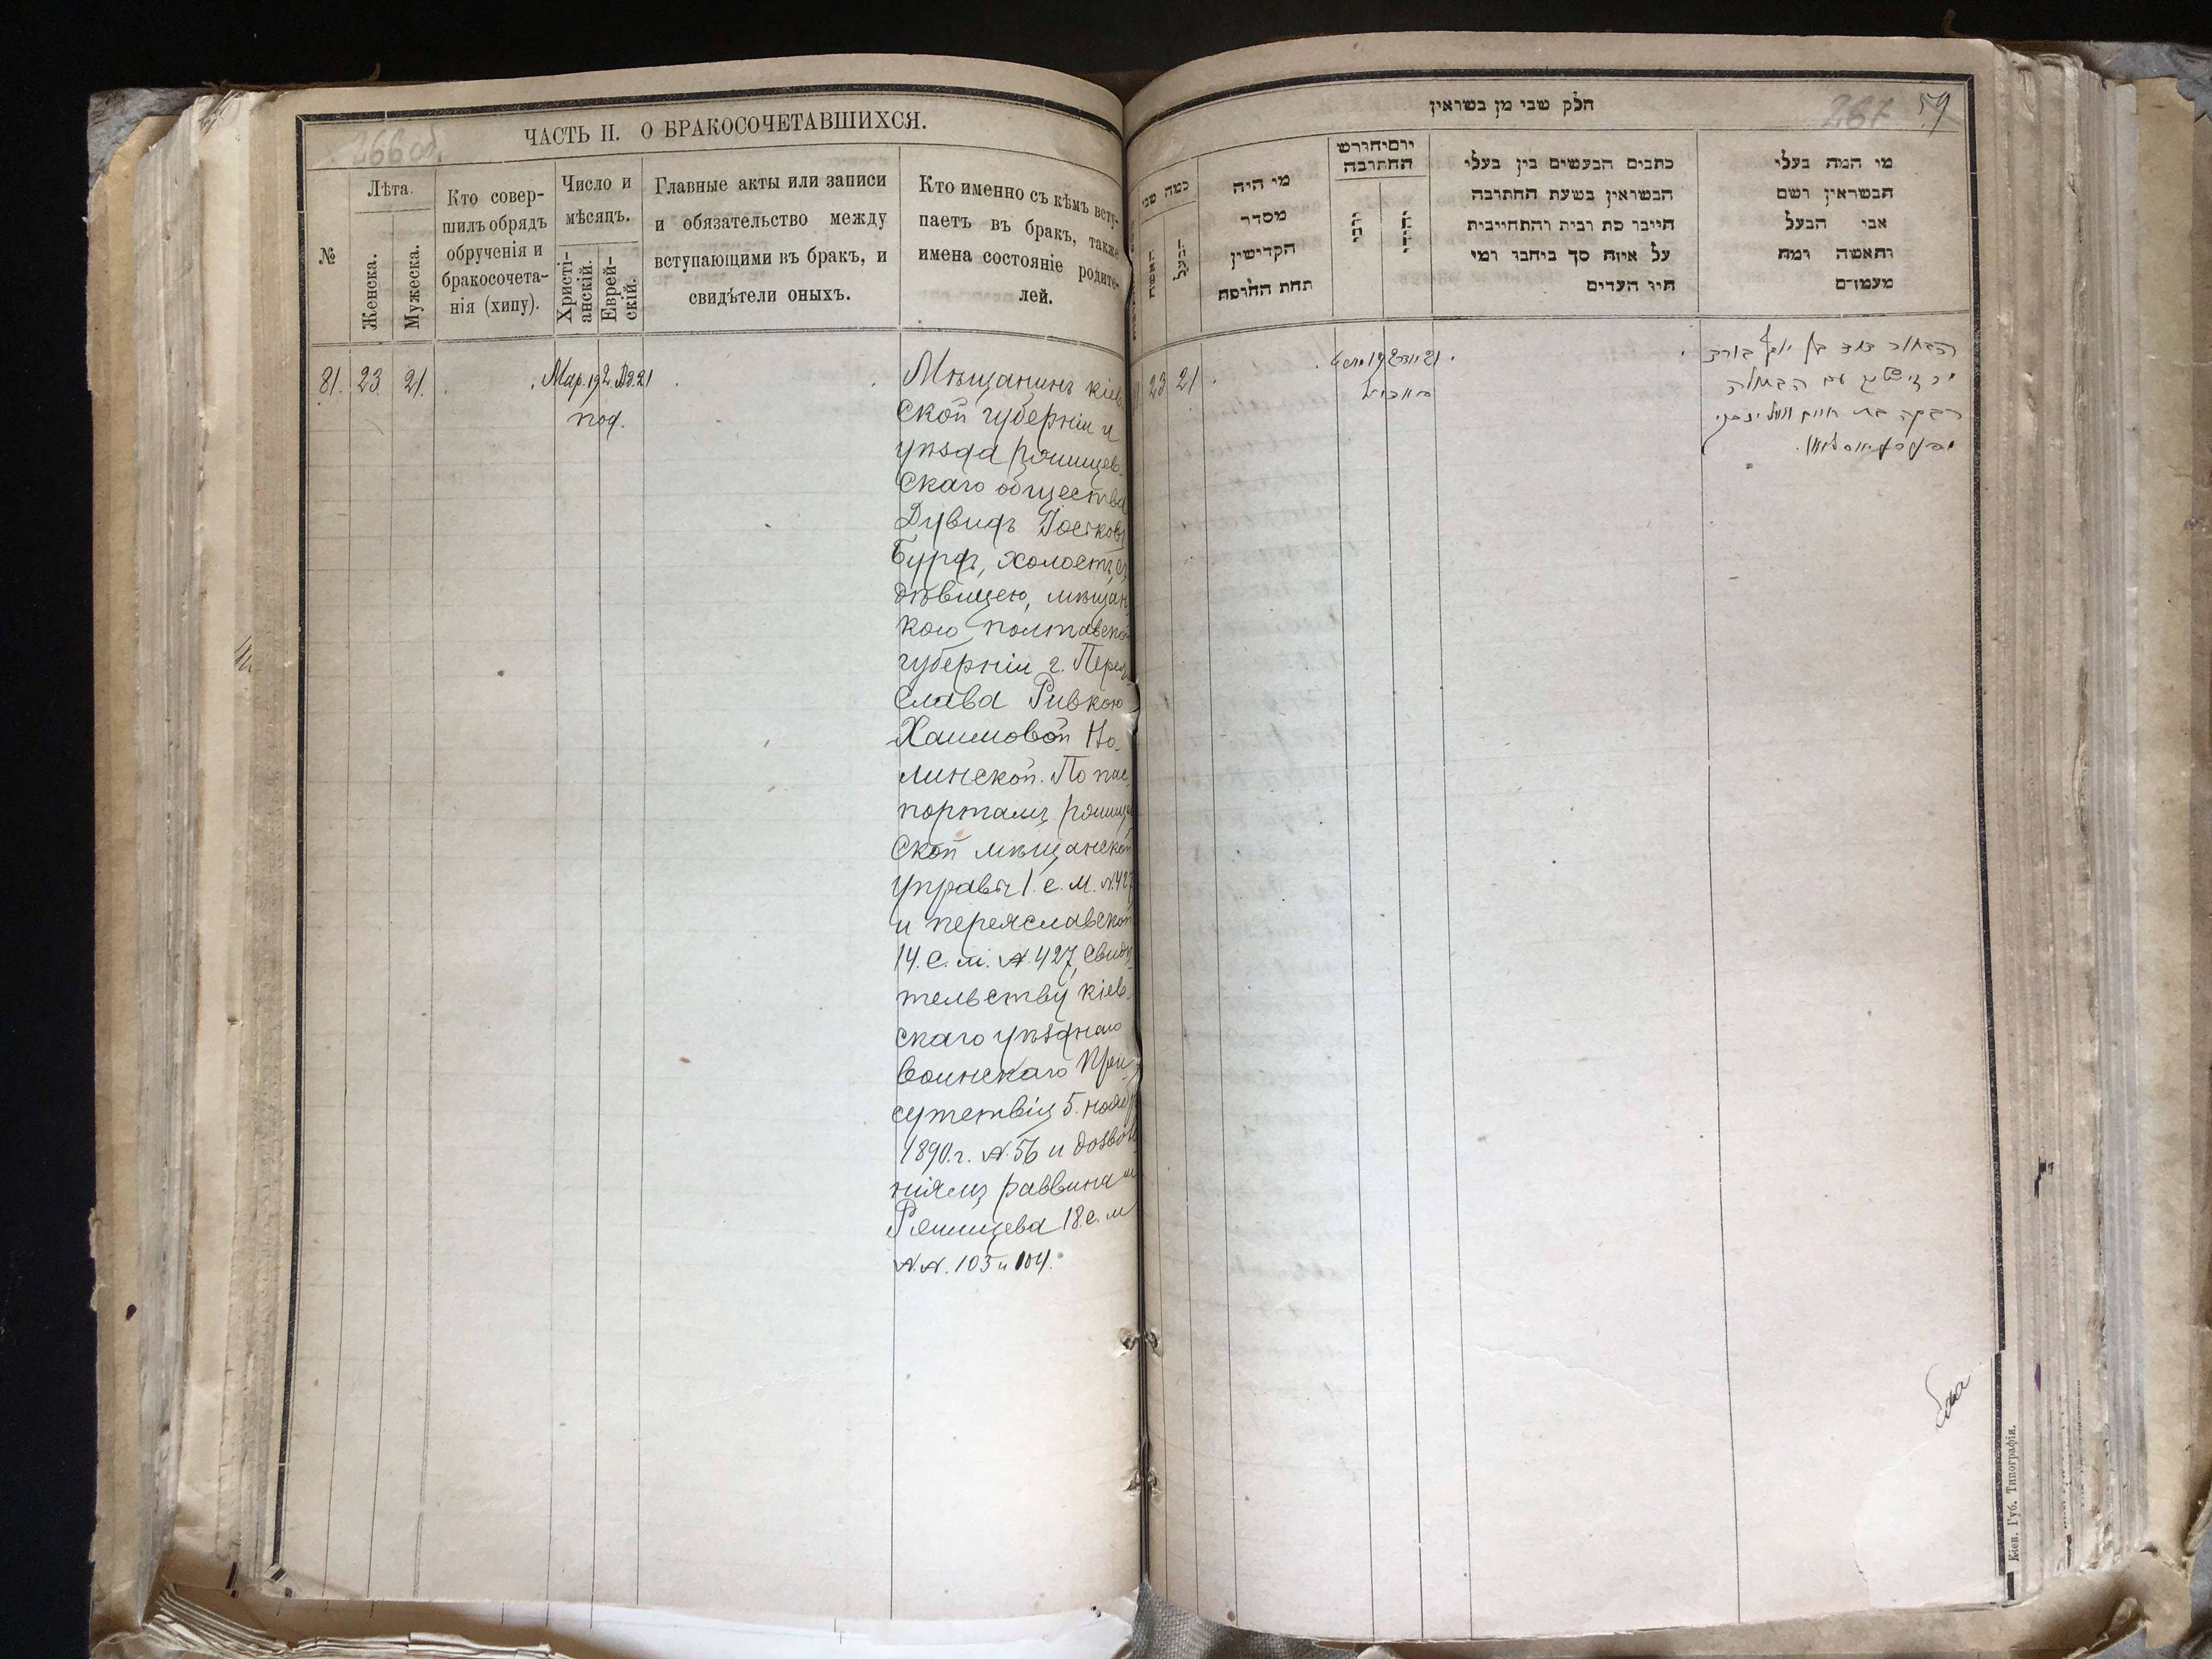 266 об.
ЧАСТЬ II. О БРАКОСОЧЕТАВШИХСЯ.
№
Лѣта.
Женска.
Мужеска.
Кто совер-
шилъ обрядъ
обрученія и
бракосочета-
нія (хипу).
Число и
мѣсяцъ.
Христі-
анскій.
Еврей-
скій.
Главные акты или записи
и обязательство между
вступающими въ бракъ, и
свидѣтели оныхъ.
Кто именно съ кѣмъ всту-
паетъ въ бракъ, также
имена состояніе родите-
лей.
81. 23 21. Мар. 19 2. Ад. 21
Мѣщанинъ кіев
ской губерніи и
уѣзда ржищев.
скаго общества
Дувидъ Іоськов
Бурдъ, холостъ, съ
дѣвицею, мѣщан
кою полтавской
губерніи г. Перея
слава Ривкою
Хаимовой
линской. По пас
портамъ ржищев
ской мѣщанской
управы 1. с. м. N. 427
и переяславской
14. с. м. N. 427, свидѣ
тельству кіев.
скаго уѣзднаго
воинскаго При
сутствія 5. нояб
1890. г. N. 56 и дозволе
ніямъ раввина м
Ржищева 18. с. м
N.N. 103 и 104.
חלק שני מן נשואין
267 59
מי המה בעלי
הנשואין ושם
אבי הבעל
והאשה ומה
מעמדם
כתבים הנעשים בין בעלי
הנשואין בשעת החתונה
חייבו סת ובית והתחייבות
על איזה סך ביחבו ומי
היו העדים
יום וחודש
החתונה
מי היה
מסדר
הקדישין
תחת החופה
כמה שני
הבעל
האשה
23 21
19
21
הבחור דוד בן יוסף בורד
עם הבתולה
רבקה בת חיים
Кіев. Губ. Типографія.